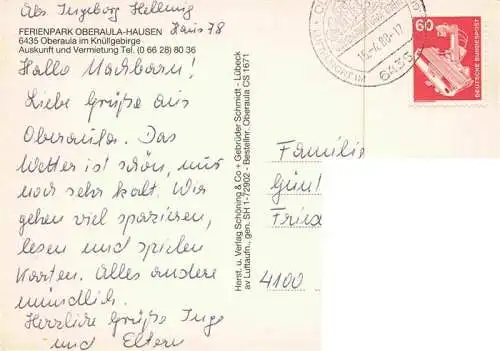 Abs. Ingeborg Hellwig
Haus 78
FERIENPARK OBERAULA-HAUSEN
6435 Oberaula im Knüllgebirge
Auskunft und Vermietung Tel. (0 66 28) 80 36
Hallo Nachbarn!
Liebe Grüße aus
Oberaula. Das
Wetter ist schön, nur
noch sehr kalt. Wir
gehen viel spazieren,
lesen und spielen
Karten. Alles andere
mündlich.
Herzliche Grüße Inge
und Eltern
Herst. u. Verlag Schöning & Co + Gebrüder Schmidt - Lübeck
av Luftaufn., gen. SH 1-72902 - Bestellnr. Oberaula CS 1671
Familie
Gün
Frie
4100
-17
6435
60
DEUTSCHE BUNDESPOST